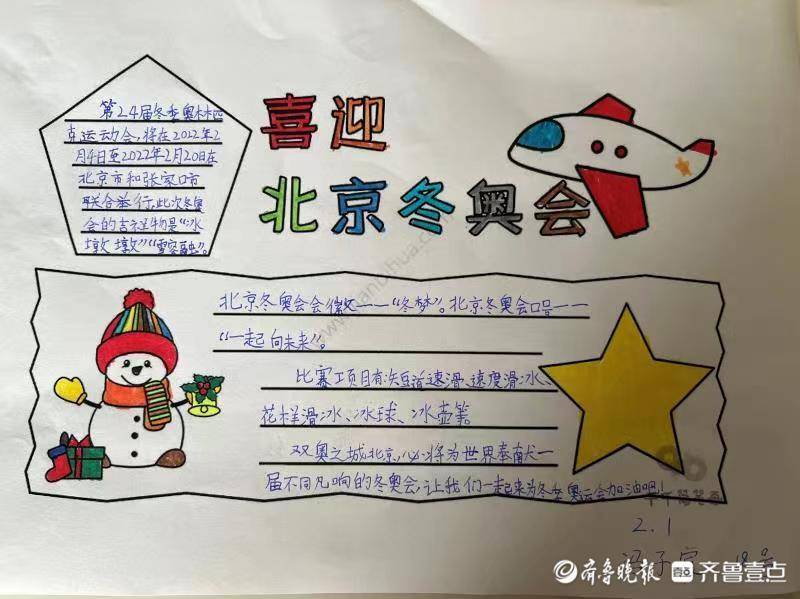 第24届冬季奥林匹
克运动会,将在2022年2
月4日至2022年2月20日在
北京市和张家口市
联合举行,此次冬奥
会的吉祥物是“冰
墩墩”“雪容融”。
喜迎
北京冬奥会
北京冬奥会会徽——“冬梦”。北京冬奥会口号——
“一起向未来”。
比赛项目有:短道速滑、速度滑冰、
花样滑冰、冰球、冰壶等
双奥之城北京,必将为世界奉献一
届不同凡响的冬奥会,让我们一起来为冬季奥运会加油吧!
2.1
子
齐鲁晚报 齐鲁壹点